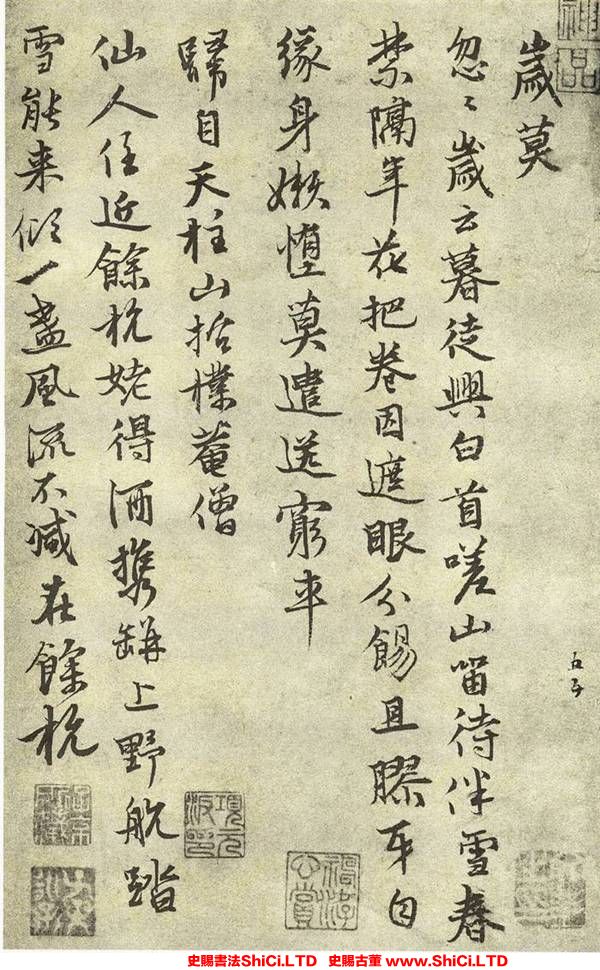 歲莫
忽〻歲云暮徒興白首嗟山留待伴雪春
禁隔年花把卷因遮眼分餳且膠牙自
緣身嬾惰莫遣送窮車
歸自天柱山招樸菴僧
仙人住近餘杭姥得酒攜缾上野航踏
雪能来傾一盞風流不減在餘杭
神品
史賜書法ShiCi.LTD 史賜古董 www.ShiCi.LTD